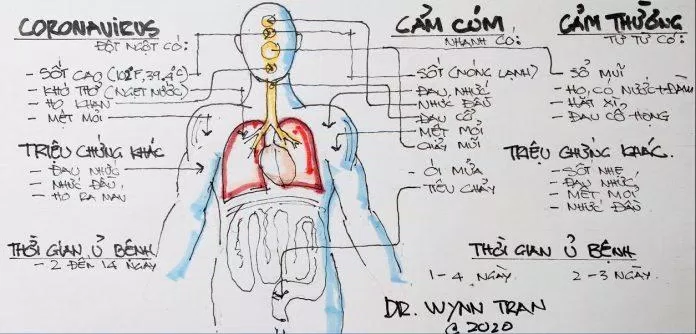 CORONAVIRUS
ĐỘT NGỘT CÓ:
- SỐT CAO (102°F, 39.4°C)
- KHÓ THỞ (NGẸT NƯỚC)
- HO KHAN
- MỆT MỎI
TRIỆU CHỨNG KHÁC
- ĐAU NHỨC
- NHỨC ĐẦU,
- HO RA MÁU
THỜI GIAN Ủ BỆNH
- 2 ĐẾN 14 NGÀY
CẢM CÚM
NHANH CÓ:
- SỐT (NÓNG LẠNH)
- ĐAU, NHỨC
- NHỨC ĐẦU
- ĐAU CỔ
- MỆT MỎI
- CHẢY MŨI
- ÓI MỬA
- TIÊU CHẢY
CẢM THƯỜNG
TỪ TỪ CÓ:
- SỔ MŨI
- HO, CÓ NƯỚC + ĐÀM
- HẮT XÌ
- ĐAU CỔ HỌNG
TRIỆU CHỨNG KHÁC.
- SỐT NHẸ
- ĐAU NHỨC
- MỆT MỎI
- NHỨC ĐẦU
THỜI GIAN Ủ BỆNH
1 - 4 NGÀY.
2 - 3 NGÀY.
DR. WYNN TRAN
© 2020